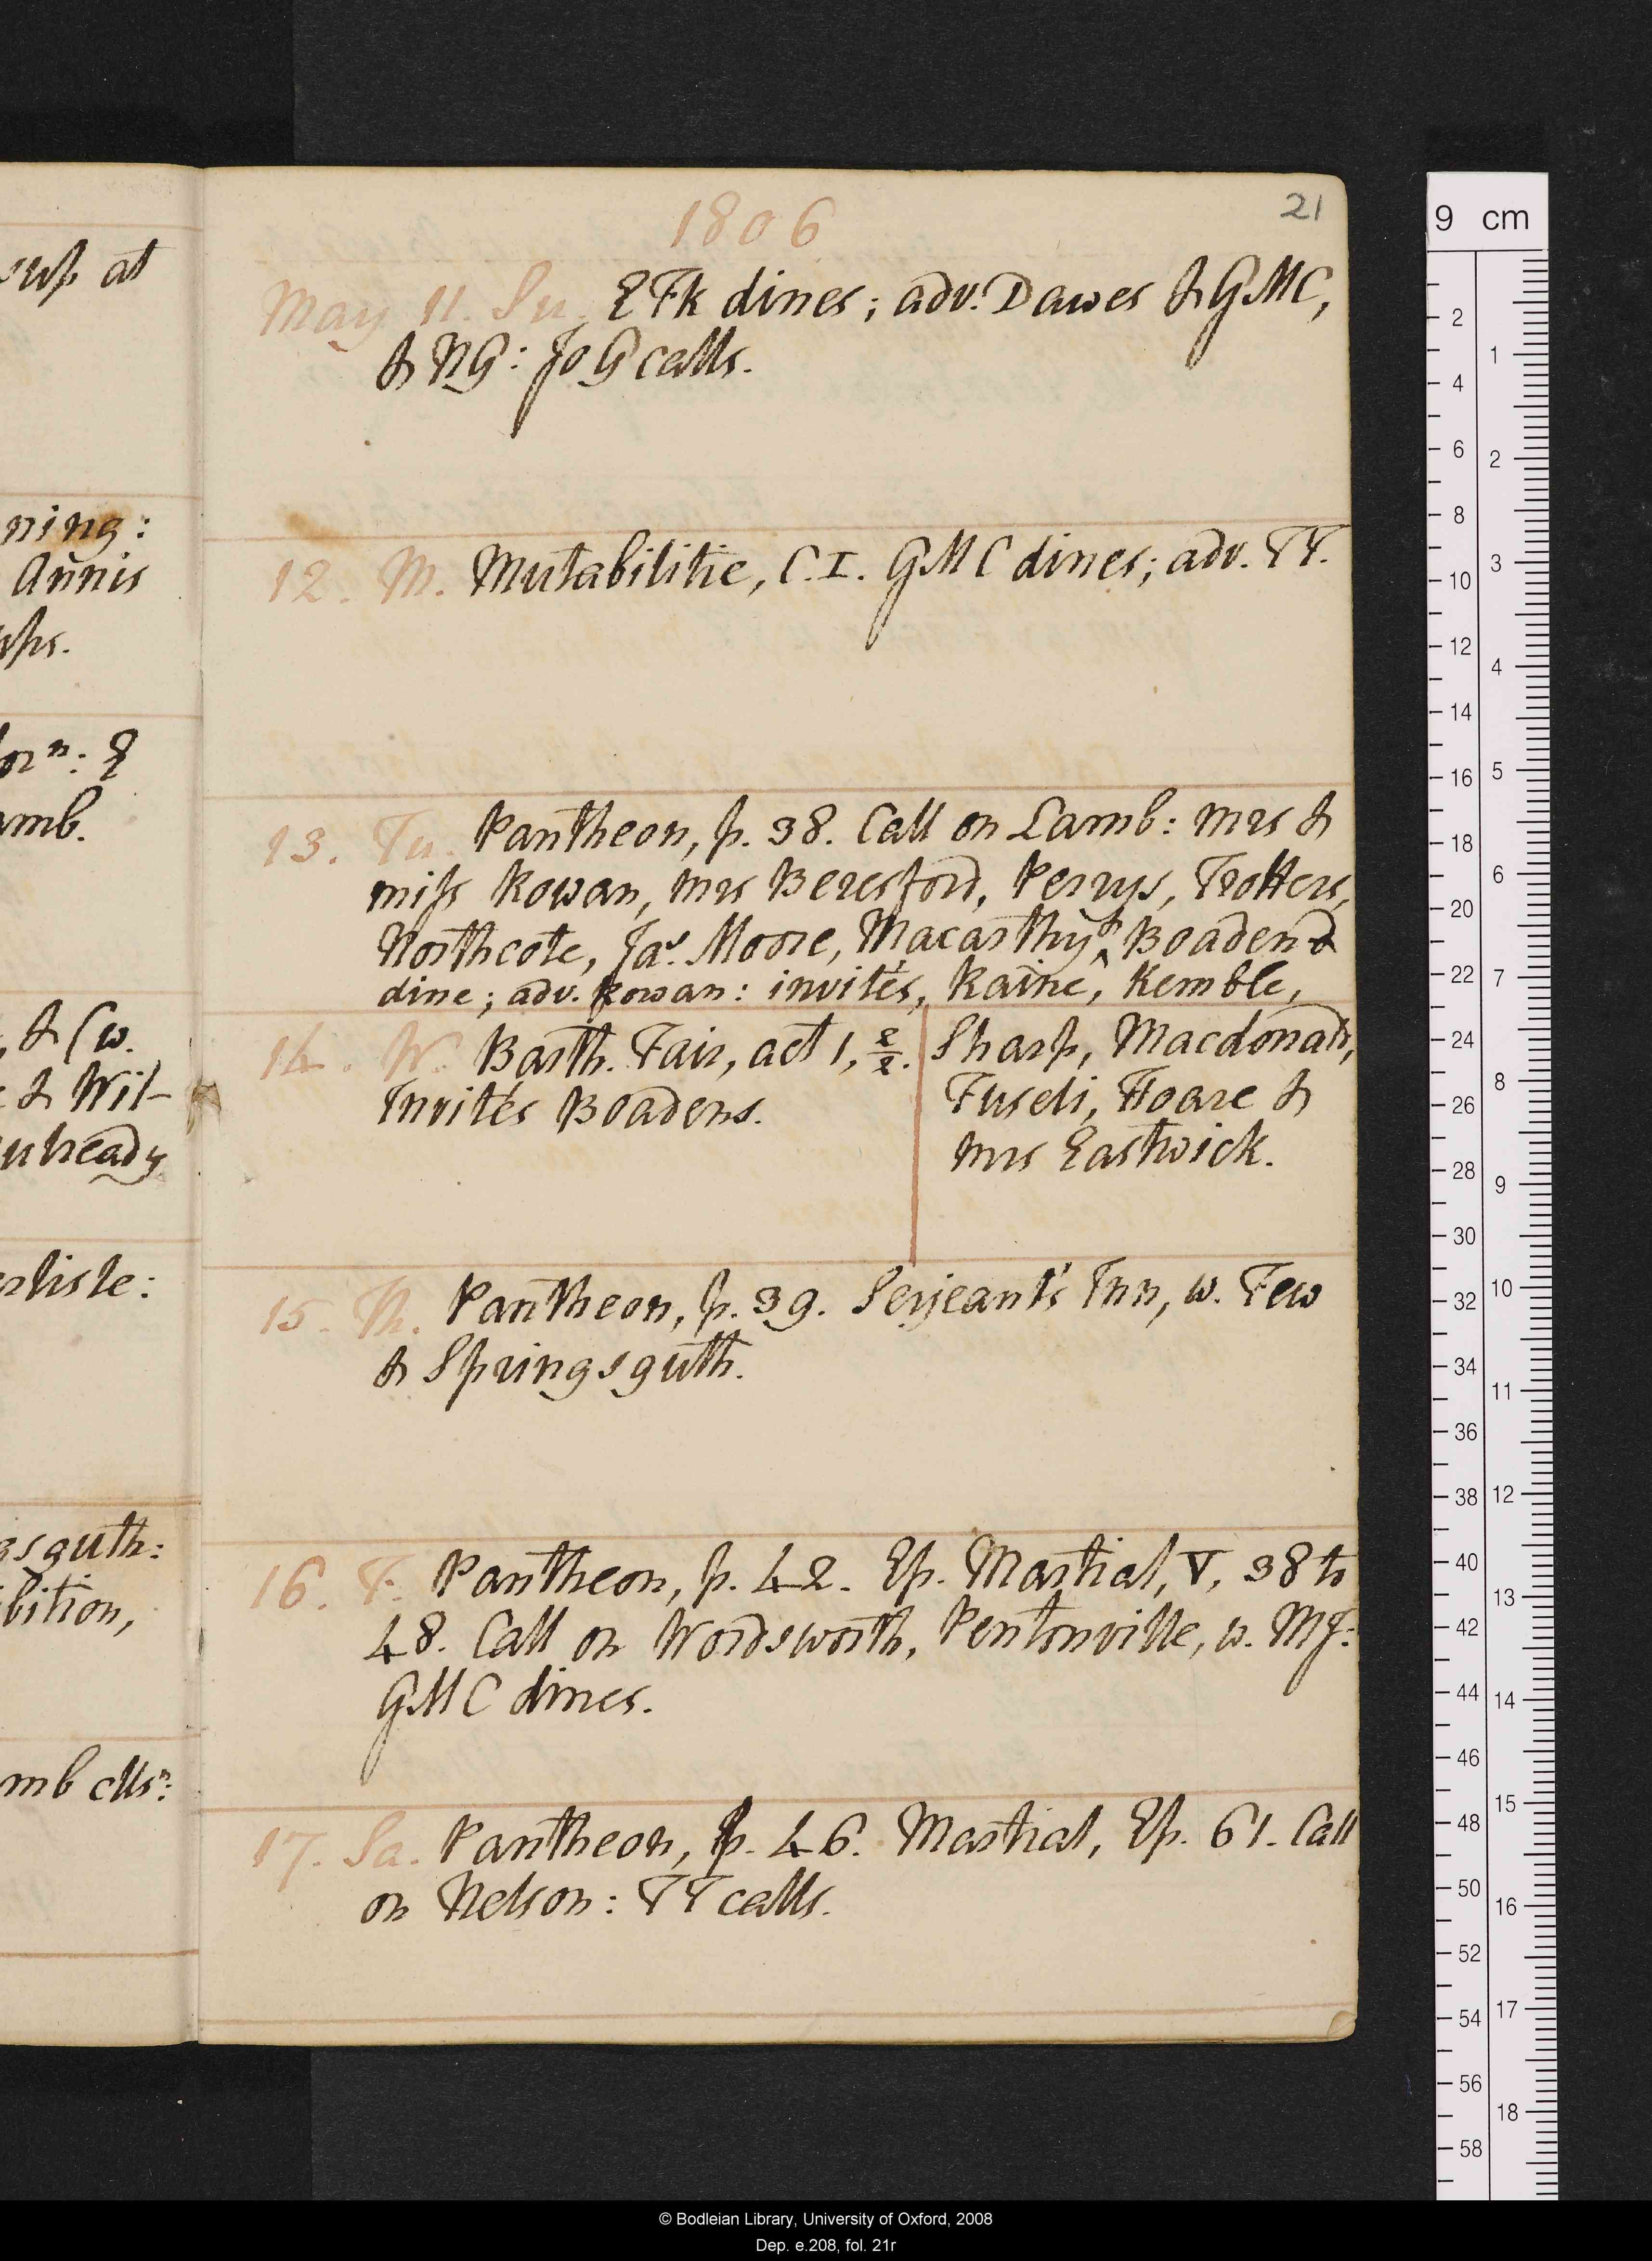 21
1806
May 11. Su. E Fk dines; adv. Dawes & GMC,
& NG: Jo G calls.
12. M. Mutabilitie, C. I. GMC dines; adv. TT.
13. Tu. Pantheon, p. 38. Call on Lamb: mrs &
miss Rowan, mrs Beresford, Perrys, Trotters,
Northcote, Jas Moore, Macarthy, & Boaden &
dine; adv. Rowan: invités, Raine, Kemble,
Sharp, Macdonald,
Fuseli, Hoare &
mrs Eastwick.
14. W. Barth. Fair, act 1, 2/2.
Invités Boadens.
15. Th. Pantheon, p. 39. Serjeant's Inn, w. Few
& Springsguth.
16. F. Pantheon, p. 42. Ep. Martial, V, 38 to
48. Call on Wordsworth, Pentonville, w. MJ:
GMC dines.
17. Sa. Pantheon, p. 46. Martial, Ep. 61. Call
on Nelson: TT calls.
sup at
ning:
Annis
amb.
& Wil-
arlisle:
sguth:
bition,
9 cm
2
4
6
8
10
12
14
16
18
20
22
24
26
28
30
32
34
36
38
40
42
44
46
48
50
52
54
56
58
1
2
3
4
5
6
7
8
9
10
11
12
13
14
15
16
17
18
© Bodleian Library, University of Oxford, 2008
Dep. e.208, fol. 21r